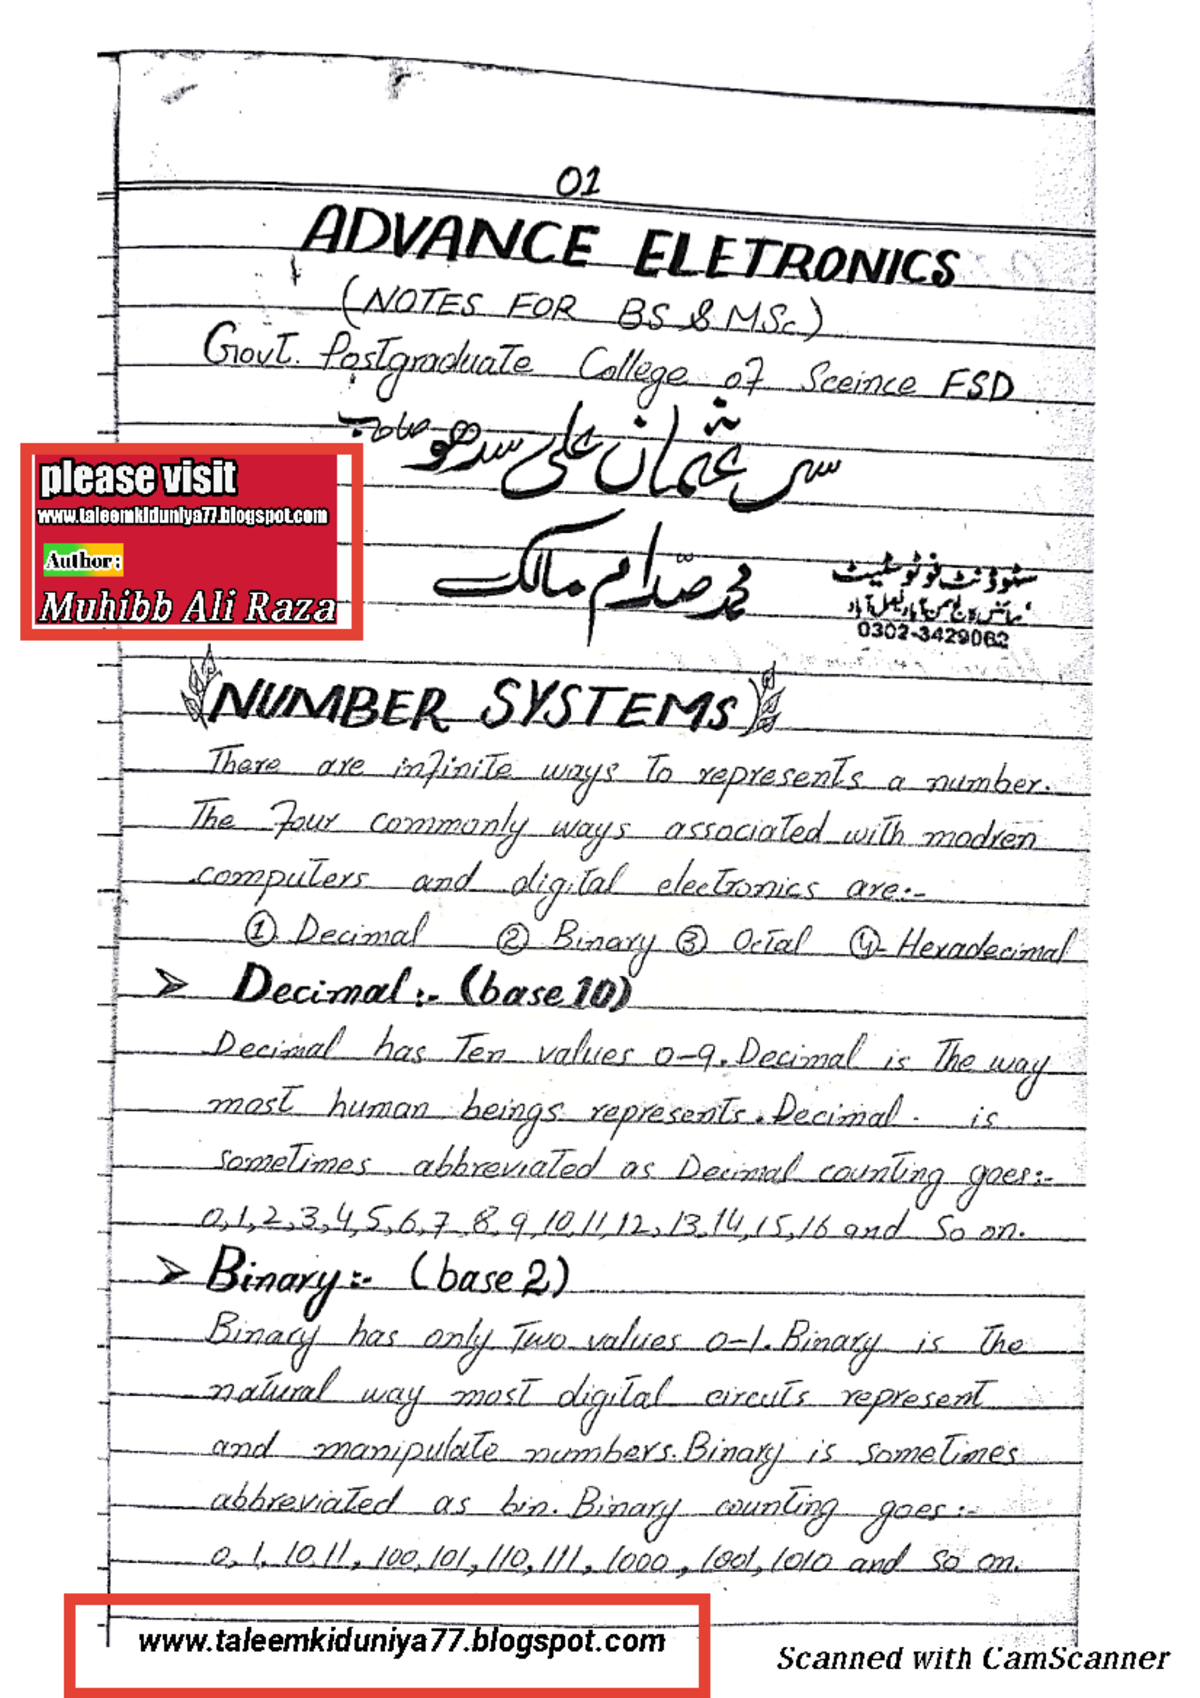 01
ADVANCE ELETRONICS
(NOTES FOR BS & MSc)
Govt. Postgraduate College of Sceince FSD
سر عثمان علی سدھو صاحب
please visit
www.taleemkiduniya77.blogspot.com
Author:
Muhibb Ali Raza
محمد صدّام مالک
سٹوڈنٹ فوٹوسٹیٹ
0302-3429062
NUMBER SYSTEMS
There are infinite ways to represents a number.
The four commonly ways associated with modren
computers and digital electronics are:-
① Decimal ② Binary ③ Octal ④ Hexadecimal
➤ Decimal:- (base 10)
Decimal has Ten values 0-9. Decimal is The way
most human beings represents. Decimal. is
sometimes abbreviated as Decimal counting goes:-
0,1,2,3,4,5,6,7,8,9,10,11,12,13,14,15,16 and So on.
➤ Binary:- (base 2)
Binary has only Two values 0-1. Binary is The
natural way most digital circuts represent
and manipulate numbers. Binary is sometimes
abbreviated as bin. Binary counting goes:-
0, 1, 10, 11, 100, 101, 110, 111, 1000, 1001, 1010 and so on.
www.taleemkiduniya77.blogspot.com
Scanned with CamScanner